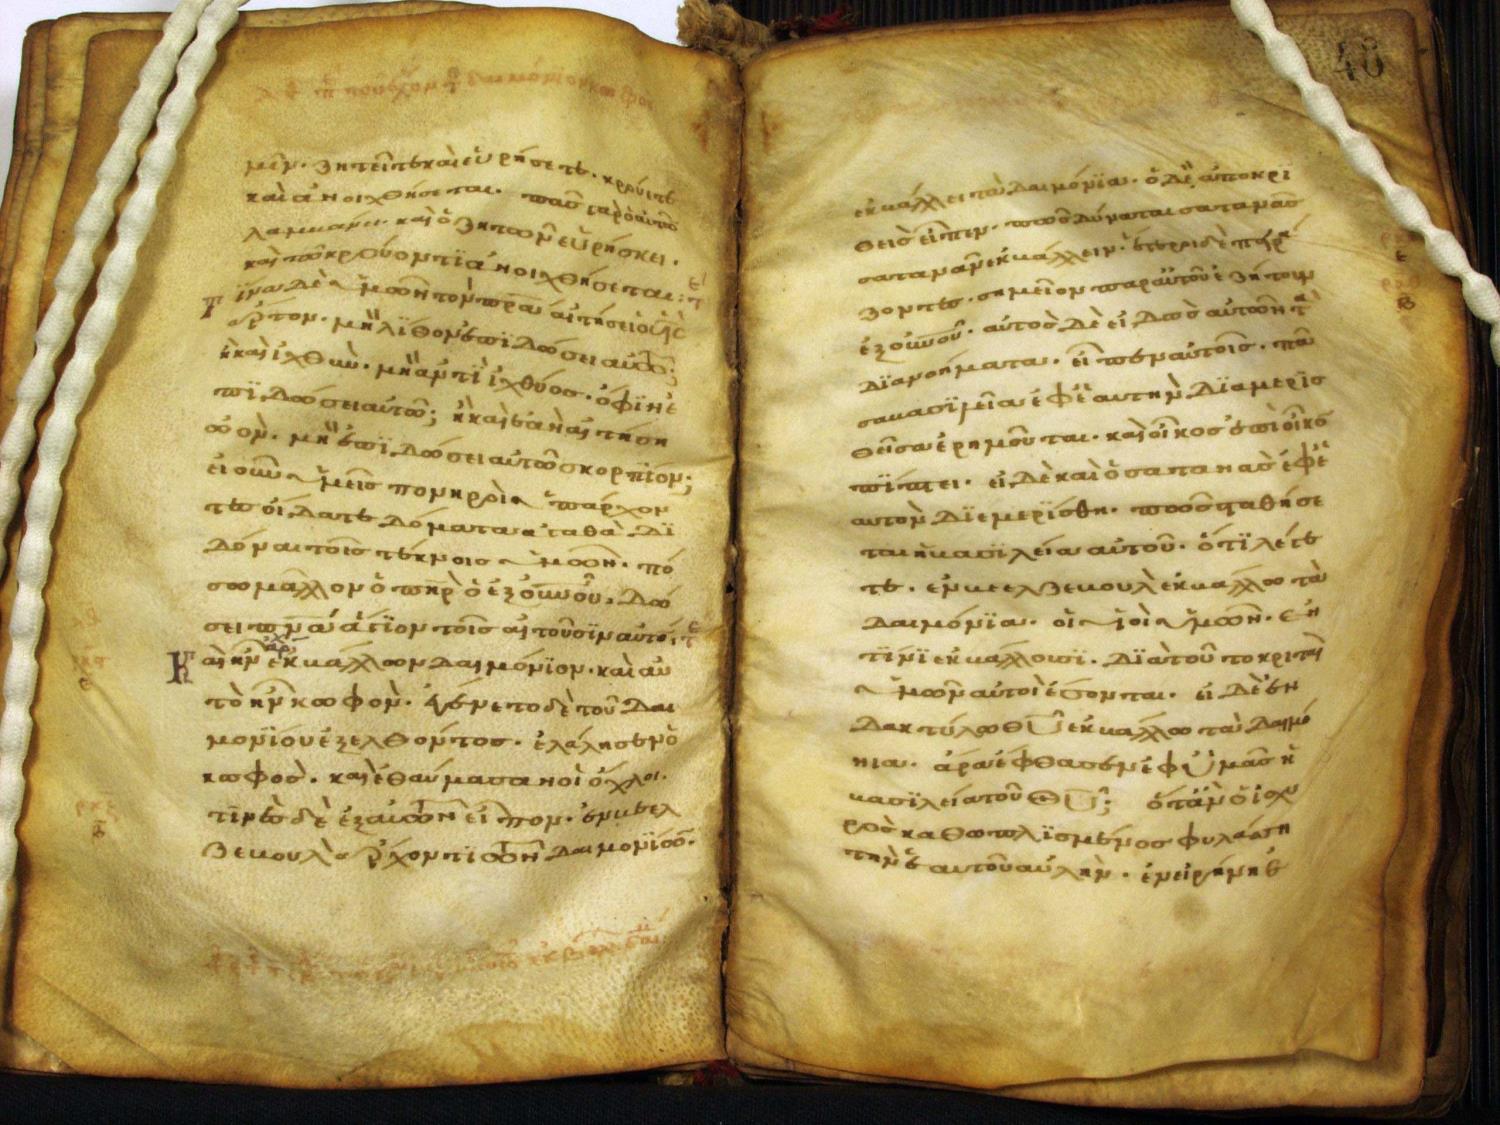 μεν· ζητεῖτε καὶ εὑρήσετε· κρούετε
καὶ ἀνοιχθήσεται· πᾶς γὰρ ὁ αἰτῶν
λαμβάνει· καὶ ὁ ζητῶν εὑρήσκει·
καὶ τῶ κρούοντϊ ἀνοιχθήσεται:
τίνα δὲ ὑμῶν τὸν πρα αἰτήσει ὁ ϋἱς
ἄρτον· μὴ λΐθον ἐπϊδώσει αὐτῶ;
ἢ καὶ ἰχθὺν· μὴ ἀντὶ ἰχθύος· ὄφιν ἐ
πϊδώσει αὐτῶ; ἢ καὶ ἐὰν αἰτήση
ὠόν· μὴ ἐπϊδώσει αὐτῶ σκορπΐον;
εἰ οὖν ὑμεῖς πονηροὶ ὑπάρχον
τες οἴδατε δόματα ἀγαθὰ δϊ
δόναι τοῖς τέκνοις ὑμῶν· πό
σω μᾶλλον ὁ πηρ ὁ ἐξ οὐνοῦ, δώ
σει πνα ἅγϊον τοῖς αἰτοῦσϊν αὐτόν;
Καὶ ἦν ἐκβάλλων δαιμόνϊον· καὶ αὐ
τὸ ἦν κωφόν· ἐγένετο δὲ τοῦ δαι
μονΐου ἐξελθόντος· ἐλάλησεν ὁ
κωφός· καὶ ἐθαύμασαν οἱ ὄχλοι·
τϊνὲς δὲ ἐξ αὐτῶν εἶπον· ἐν βεελ
ζεβοὺλ ἄρχοντι τῶν δαιμονΐων·
48
ἐκβάλλει τὰ δαιμόνϊα· ὁ δὲ ἀποκρϊ
θεὶς εἶπεν· πῶς δύναται σατανᾶς
σατανᾶν ἐκβάλλειν· ἕτεροι δὲ πειρά
ζοντες· σημεῖον παρ αὐτοῦ ἐζήτουν
ἐξ οὐνοῦ· αὐτὸς δὲ εἰδὼς αὐτῶν τὰ
δϊανοήματα· εἶπεν αὐτοῖς· πᾶ
σα βασϊλεία ἐφ ἑαυτὴν δϊαμερϊσ
θεῖσα ἐρημοῦται· καὶ οἶκος ἐπὶ οἶκον
πΐπτει· εἰ δὲ καὶ ὁ σατανᾶς ἐφ ἑ
αυτὸν δϊεμερΐσθη· πῶς σταθήσε
ται ἡ βασϊλεία αὐτοῦ· ὅτϊ λέγε
τε· ἐν βεελζεβοὺλ ἐκβάλλω τὰ
δαιμόνϊα· οἱ ϋἱοὶ ὑμῶν· ἐν
τΐνϊ ἐκβάλλουσϊ· δϊὰ τοῦτο κριταὶ
ὑμῶν αὐτοὶ ἔσονται· εἰ δὲ ἐν
δακτύλω θυ ἐκβάλλω τὰ δαιμό
νια· ἄρα ἔφθασεν ἐφ ὑμᾶς ἡ
βασϊλεία τοῦ θυ; ὅταν ὁ ἰσχυ
ρὸς καθωπλϊσμένος φυλάσση
τὴν ἑαυτοῦ αὐλὴν· ἐν εἰρήνη ἐ